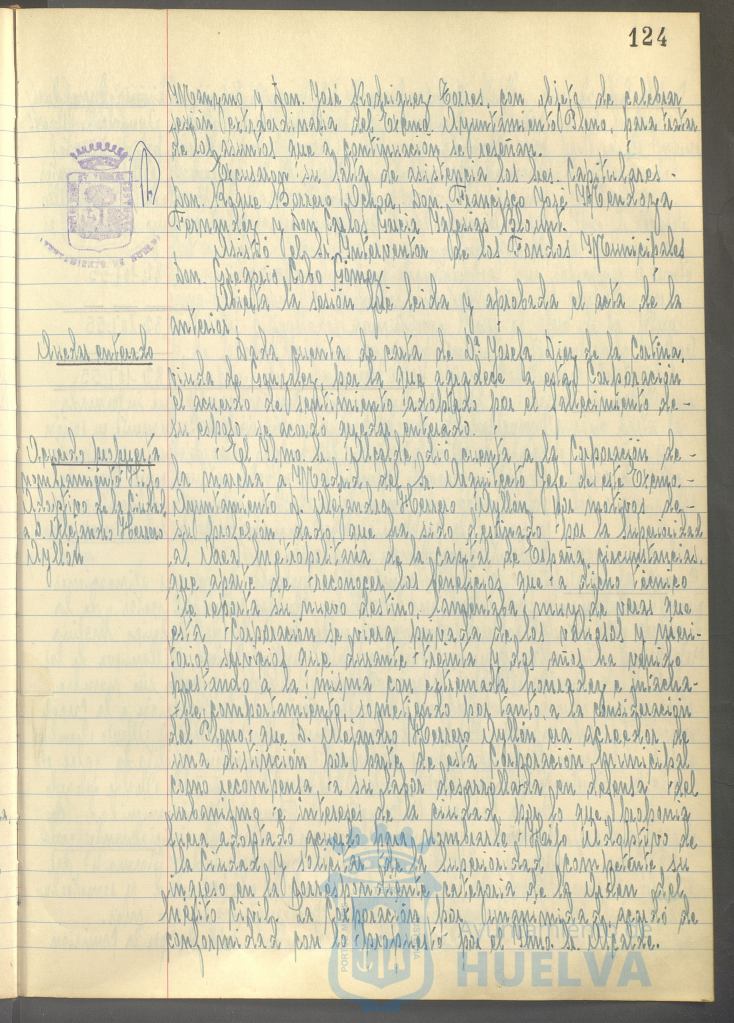 124
Manzano y Don José Rodriguez Torres, con objeto de celebrar
sesión extraordinaria del Excmo Ayuntamiento Pleno, para tratar
de los asuntos que a continuación se reseñan.
Excusaron su falta de asistencia los Sres. Capitulares
Don Roque Borrero Ochoa, Don Francisco José Mendoza
Fernandez y Don Carlos Garcia Yglesias Blount.
Asistió el Sr. Interventor de los Fondos Municipales
Don Gregorio Cobo Gómez
Abierta la sesión fué leida y aprobada el acta de la
anterior.
Quedar enterado
Dada cuenta de carta de Dª Josefa Diez de la Cortina,
viuda de Gonzalez, por la que agradece a esta Corporación
el acuerdo de sentimiento adoptado por el fallecimiento de-
su esposo se acordó quedar enterado.
Acuerdo propuesta
nombramiento Hijo
Adoptivo de la Ciudad
a D. Alejandro Herrero
Ayllón
El Iltmo. Sr. Alcalde dió cuenta a la Corporación de-
la marcha a Madrid del Sr. Arquitecto Jefe de este Excmo.
Ayuntamiento D. Alejandro Herrero Ayllón por motivos de-
su profesión, dado que ha sido destinado por la Superioridad
al Area Metropolitana de la capital de España, circunstancias
que aparte de reconocer los beneficios que a dicho técnico
le reporta su nuevo destino, lamentaba muy de veras que
esta Corporación se viera privada de los valiosos y meri-
torios servicios que durante treinta y dos años ha venido
prestando a la misma con extremada honradez e intacha-
ble comportamiento, sometiendo por tanto, a la consideración
del Pleno que D. Alejandro Herrero Ayllón era acreedor de
una distinción por parte de esta Corporación Municipal
como recompensa, a su labor desarrollada en defensa del
urbanismo e intereses de la ciudad, por lo que proponia
fuera adoptado acuerdo para nombrarlo Hijo Adoptivo de
la Ciudad, y solicitar de la Superioridad, competente su
ingreso en la correspondiente categoria de la Orden del
Mérito Civil. La Corporación por unanimidad acordó de
conformidad con lo propuesto por el Iltmo. Sr. Alcalde.
Ayuntamiento de
HUELVA